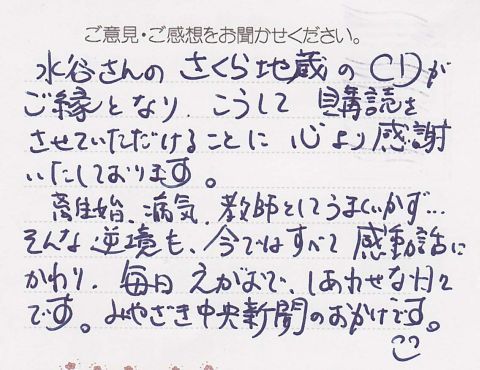 ご意見・ご感想をお聞かせください。
水谷さんの さくら地蔵の CDが
ご縁となり、こうして 購読を
させていただけることに 心より感謝
いたしております。
離婚、病気、教師としてうまくいかず…
そんな逆境も、今ではすべて 感動話に
かわり、毎日 えがおで、しあわせな日々
です。みやざき中央新聞のおかげです。